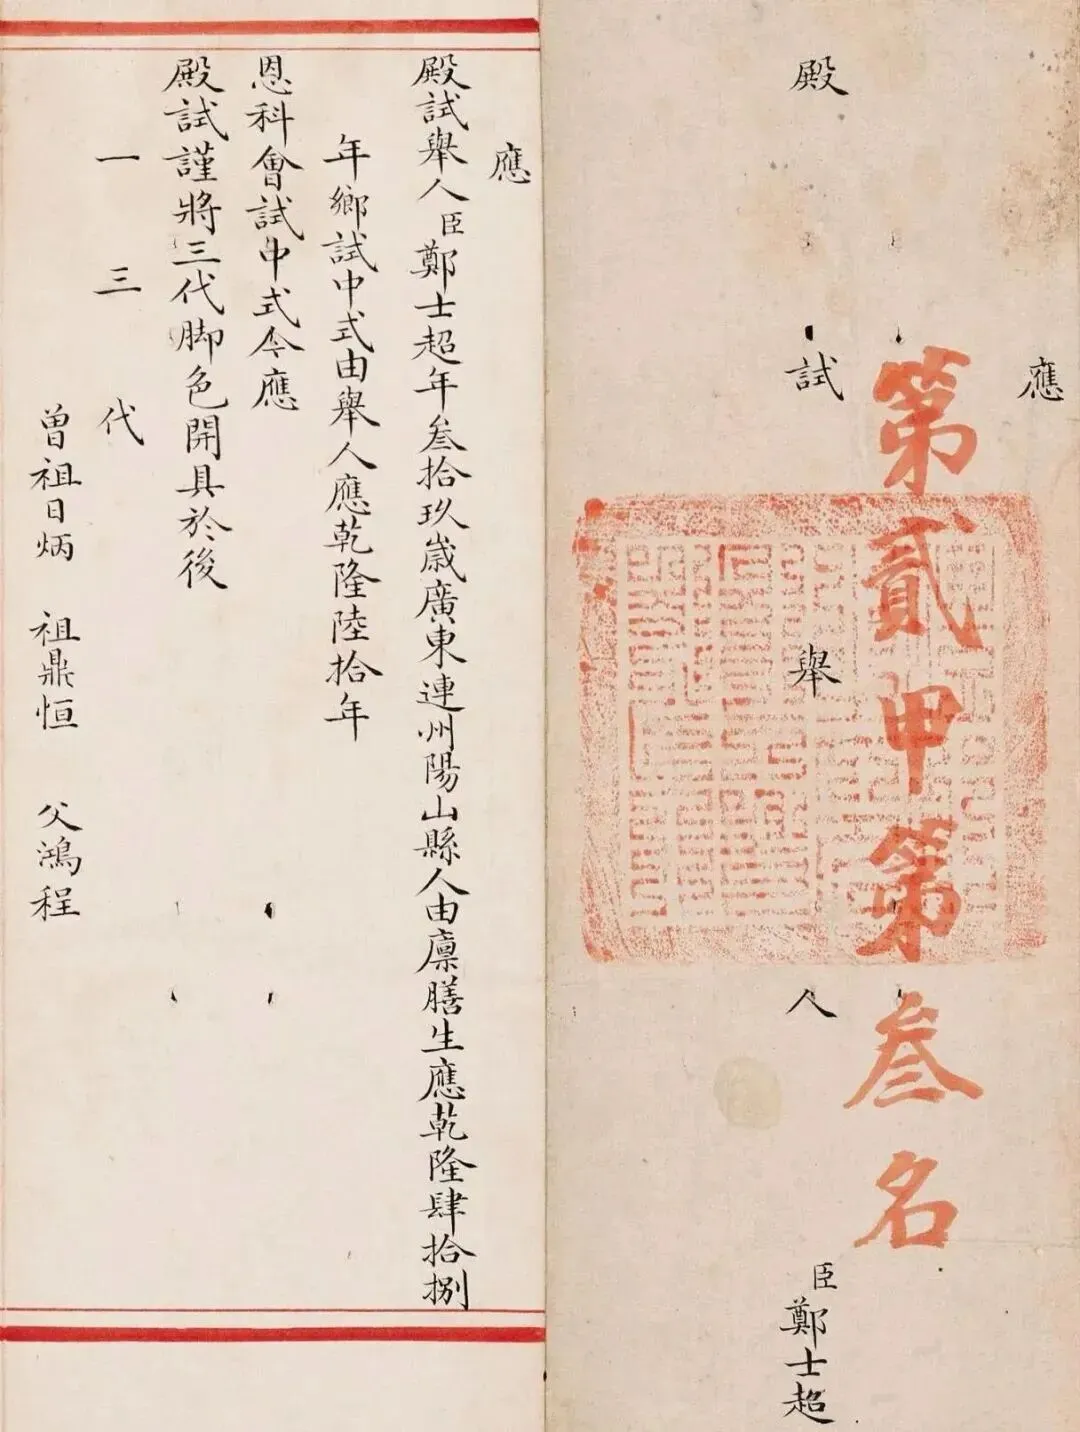 應
第貳甲第叁名
殿試舉人
臣鄭士超
應
殿試舉人臣鄭士超年叁拾玖歲廣東連州陽山縣人由廪膳生應乾隆肆拾捌
年鄉試中式由舉人應乾隆陸拾年
恩科會試中式今應
殿試謹將三代脚色開具於後
一三代
曾祖日炳 祖鼎恒 父鴻程